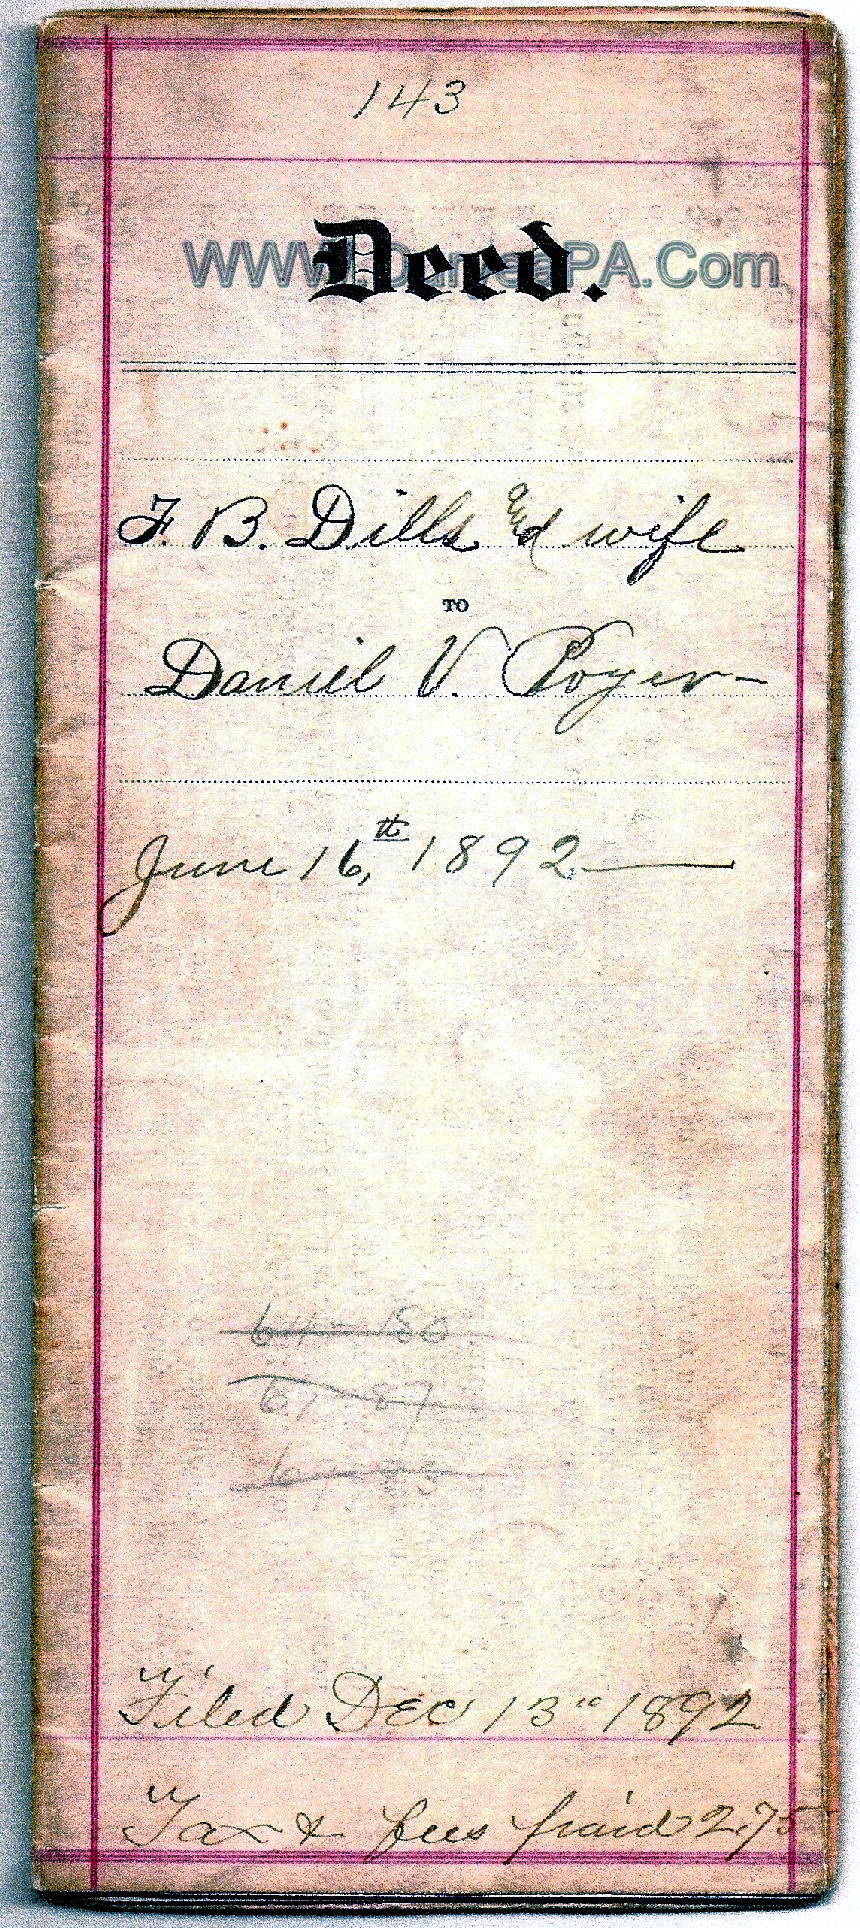 143
Deed.
F. B. Dills and wife
TO
Daniel V. Poyer
June 16,th 1892
64 180
61 87
Filed Dec 13" 1892
Tax & fees paid 2.75